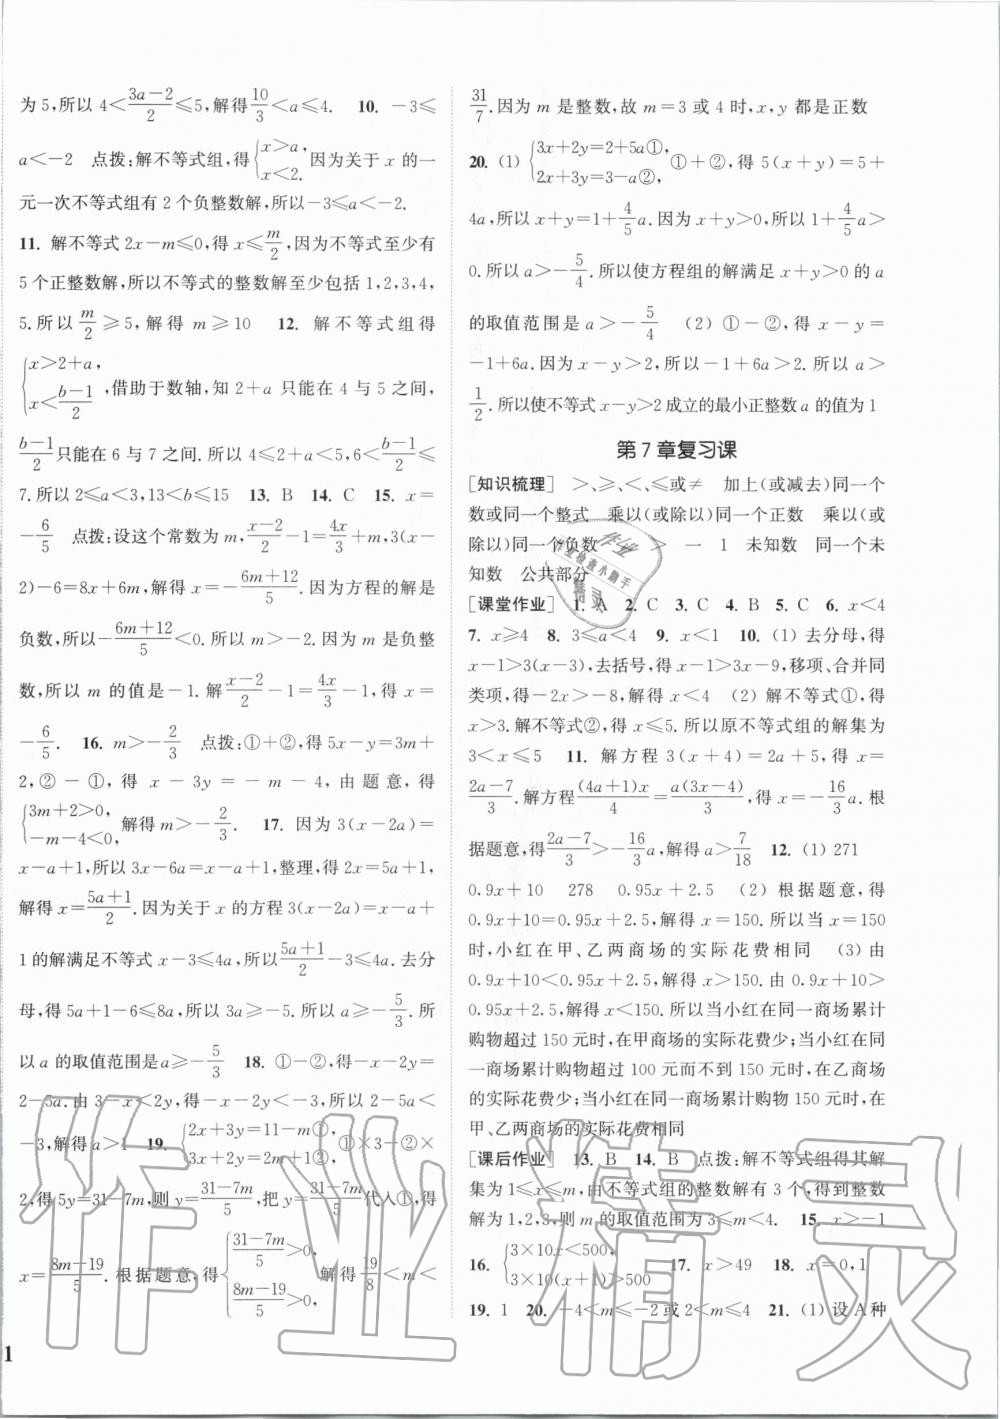 为 5,所以 4<(3a-2)/2≤5,解得10/3<a≤4. 10. -3≤
a<-2 点拨:解不等式组,得{x>a, x<2. 因为关于 x 的一
元一次不等式组有 2 个负整数解,所以-3≤a<-2.
11. 解不等式 2x-m≤0,得 x≤m/2,因为不等式至少有
5 个正整数解,所以不等式的整数解至少包括 1,2,3,4,
5.所以 m/2≥5,解得 m≥10 12. 解不等式组得
{x>2+a, x<(b-1)/2 ,借助于数轴,知 2+a 只能在 4 与 5 之间,
(b-1)/2只能在 6 与 7 之间.所以 4≤2+a<5,6<(b-1)/2≤
7.所以 2≤a<3,13<b≤15 13. B 14. C 15. x=
-6/5 点拨:设这个常数为 m,(x-2)/2-1=4x/3+m,3(x-
2)-6=8x+6m,解得 x=-(6m+12)/5.因为方程的解是
负数,所以-(6m+12)/5<0.所以 m>-2.因为 m 是负整
数,所以 m 的值是-1.解(x-2)/2-1=4x/3-1,得 x=
-6/5. 16. m>-2/3 点拨:①+②,得 5x-y=3m+
2,②-①,得 x-3y=-m-4,由题意,得
{3m+2>0, -m-4<0, 解得 m>-2/3. 17. 因为 3(x-2a)=
x-a+1,所以 3x-6a=x-a+1,整理,得 2x=5a+1,
解得 x=(5a+1)/2.因为关于 x 的方程 3(x-2a)=x-a+
1 的解满足不等式 x-3≤4a,所以(5a+1)/2-3≤4a.去分
母,得 5a+1-6≤8a,所以 3a≥-5.所以 a≥-5/3.所
以 a 的取值范围是 a≥-5/3 18. ①-②,得-x-2y=
2-5a.由 3-x<2y,得-x-2y<-3,所以 2-5a<
-3,解得 a>1 19. {2x+3y=11-m①, 3x+2y=2m+1②, ①×3-②×
2,得 5y=31-7m,则 y=(31-7m)/5,把 y=(31-7m)/5代入①,得
x=(8m-19)/5.根据题意,得{(31-7m)/5>0, (8m-19)/5>0, 解得19/8<m<
1
31/7.因为 m 是整数,故 m=3 或 4 时,x,y 都是正数
20. (1) {3x+2y=2+5a①, 2x+3y=3-a②, ①+②,得 5(x+y)=5+
4a,所以 x+y=1+4/5a.因为 x+y>0,所以 1+4/5a>
0.所以 a>-5/4.所以使方程组的解满足 x+y>0 的 a
的取值范围是 a>-5/4 (2) ①-②,得 x-y=
-1+6a.因为 x-y>2,所以-1+6a>2,所以 a>
1/2.所以使不等式 x-y>2 成立的最小正整数 a 的值为 1
第 7 章复习课
[知识梳理] >、≥、<、≤或≠ 加上(或减去)同一个
数或同一个整式 乘以(或除以)同一个正数 乘以(或
除以)同一个负数 > 一 1 未知数 同一个未
知数 公共部分
[课堂作业] 1. A 2. C 3. C 4. B 5. C 6. x<4
7. x≥4 8. 3≤a<4 9. x<1 10. (1) 去分母,得
x-1>3(x-3),去括号,得 x-1>3x-9,移项、合并同
类项,得-2x>-8,解得 x<4 (2) 解不等式①,得
x>3.解不等式②,得 x≤5.所以原不等式组的解集为
3<x≤5 11. 解方程 3(x+4)=2a+5,得 x=
(2a-7)/3.解方程(4a+1)x/3=a(3x-4)/3,得 x=-16/3a.根
据题意,得(2a-7)/3>-16/3a,解得 a>7/18 12. (1) 271
0.9x+10 278 0.95x+2.5 (2) 根据题意,得
0.9x+10=0.95x+2.5,解得 x=150.所以当 x=150
时,小红在甲、乙两商场的实际花费相同 (3) 由
0.9x+10<0.95x+2.5,解得 x>150.由 0.9x+10>
0.95x+2.5,解得 x<150.所以当小红在同一商场累计
购物超过 150 元时,在甲商场的实际花费少;当小红在同
一商场累计购物超过 100 元而不到 150 元时,在乙商场
的实际花费少;当小红在同一商场累计购物 150 元时,在
甲、乙两商场的实际花费相同
[课后作业] 13. B 14. B 点拨:解不等式组得其解
集为 1≤x≤m,由不等式组的整数解有 3 个,得到整数
解为 1,2,3,则 m 的取值范围为 3≤m<4. 15. x>-1
16. {3×10x<500, 3×10(x+1)>500 17. x>49 18. x=0,1
19. 1 20. -4<m≤-2 或 2<m≤4 21. (1) 设 A 种
作业精灵